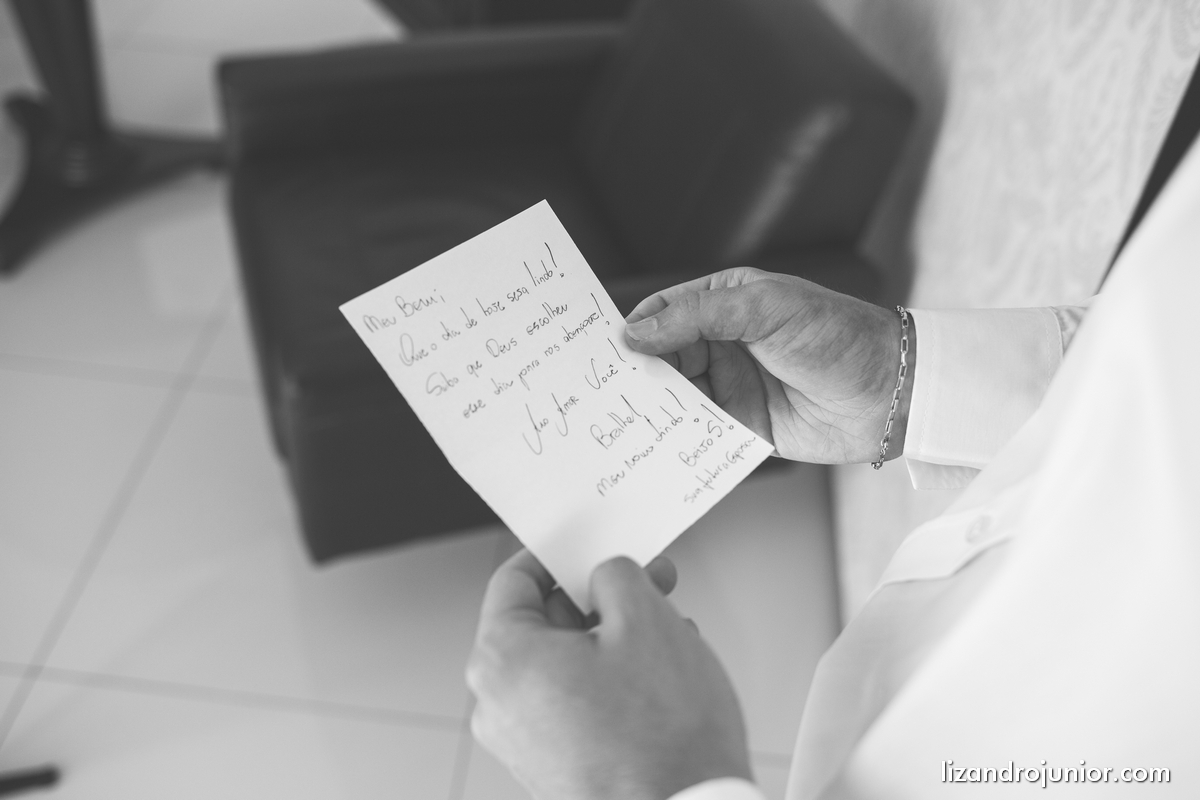 Meu Bem;
Que o dia de hoje seja lindo!
Saiba que Deus escolheu
esse dia para nos abençoar!
Vou Amar Você!
Brilhe!
Meu noivo lindo!
Beijos!
Sua futura Esposa
lizandrojunior.com